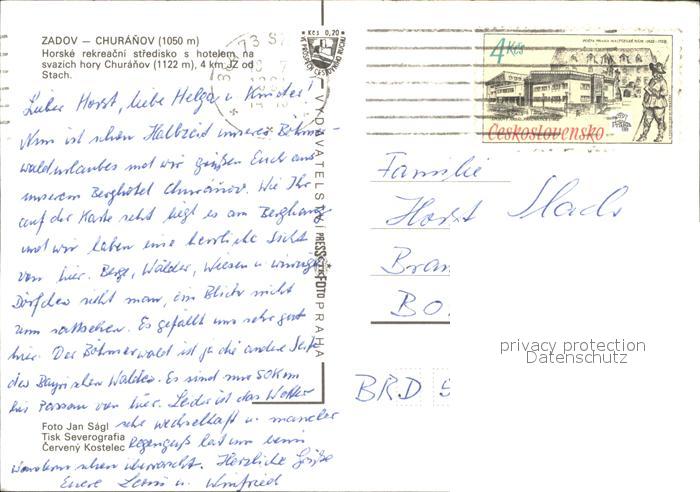 ZADOV – CHURÁŇOV (1050 m)
Horské rekreační středisko s hotelem na
svazích hory Churáňov (1122 m), 4 km JZ od
Stach.
Lieber Horst, liebe Helga u. Kinder!
Nun ist schon Halbzeit unseres Böhmer-
waldurlaubes und wir grüßen Euch aus
unserem Berghotel Churáňov. Wie Ihr
auf der Karte seht liegt es am Berghang
und wir haben eine herrliche Sicht
von hier. Berge, Wälder, Wiesen u. winzige
Dörfchen sieht man, ein Blick nicht
zum sattsehen. Es gefällt uns sehr gut
hier. Der Böhmerwald ist ja die andere Seite
des Bayrischen Waldes. Es sind nur 50 km
bis Passau von hier. Leider ist das Wetter
sehr wechselhaft u. mancher
Regenguß hat uns beim
Wandern schon überrascht. Herzliche Grüße
Eure u. Winfried
Foto Jan Ságl
Tisk Severografia
Červený Kostelec
VYDAVATELSTVÍ PRESSFOTO PRAHA
Kčs 0,20
73
4 Kčs
Československo
Familie
Horst
Bran
Bo
BRD 5
privacy protection
Datenschutz